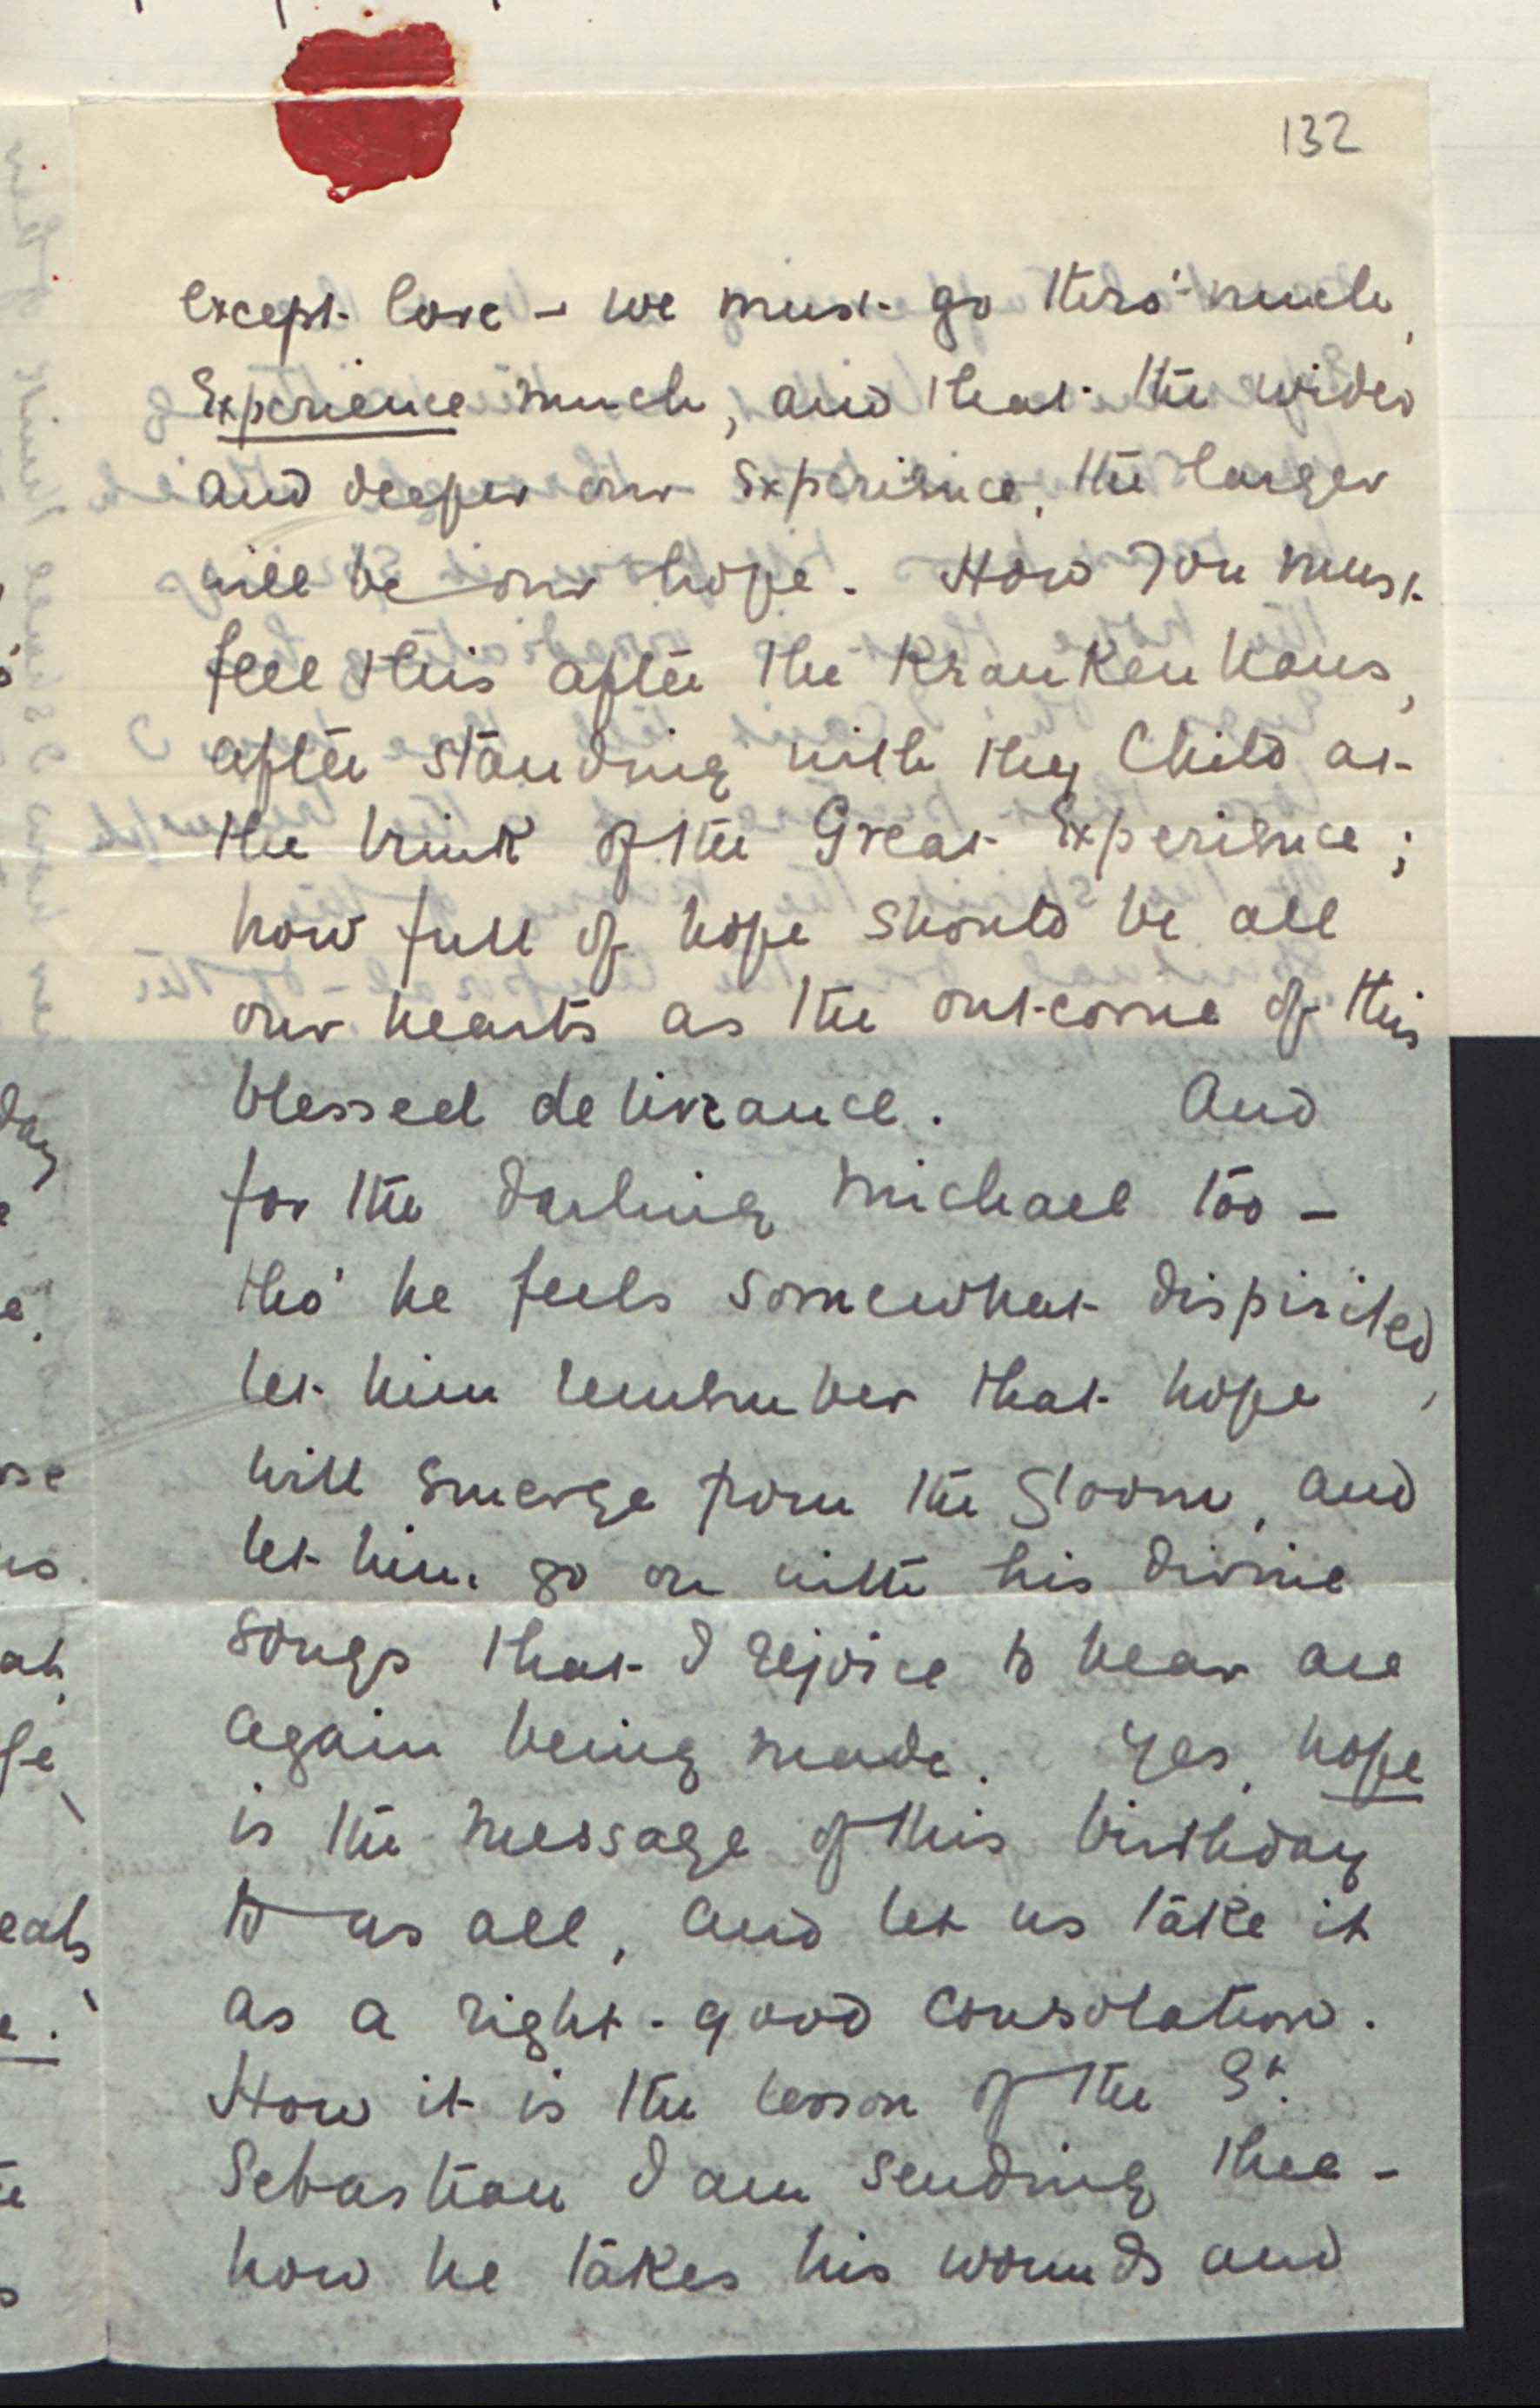 132
except love – we must go thro' much,
Experience much, and that the wider
and deeper our Experience, the larger
will be our hope. How you must
feel this after the Krankenhaus,
after standing with thy Child at
the brink of the Great Experience;
how full of hope should be all
our hearts as the out-come of this
blessed deliverance. And
for the darling Michael too –
tho' he feels somewhat dispirited,
let him remember that hope
will Emerge from the Gloom, and
let him go on with his divine
songs that I rejoice to hear are
again being made. Yes, hope
is the message of this birthday
to us all, and let us take it
as a right-good consolation.
How it is the lesson of the St.
Sebastian I am sending thee –
how he takes his wounds and